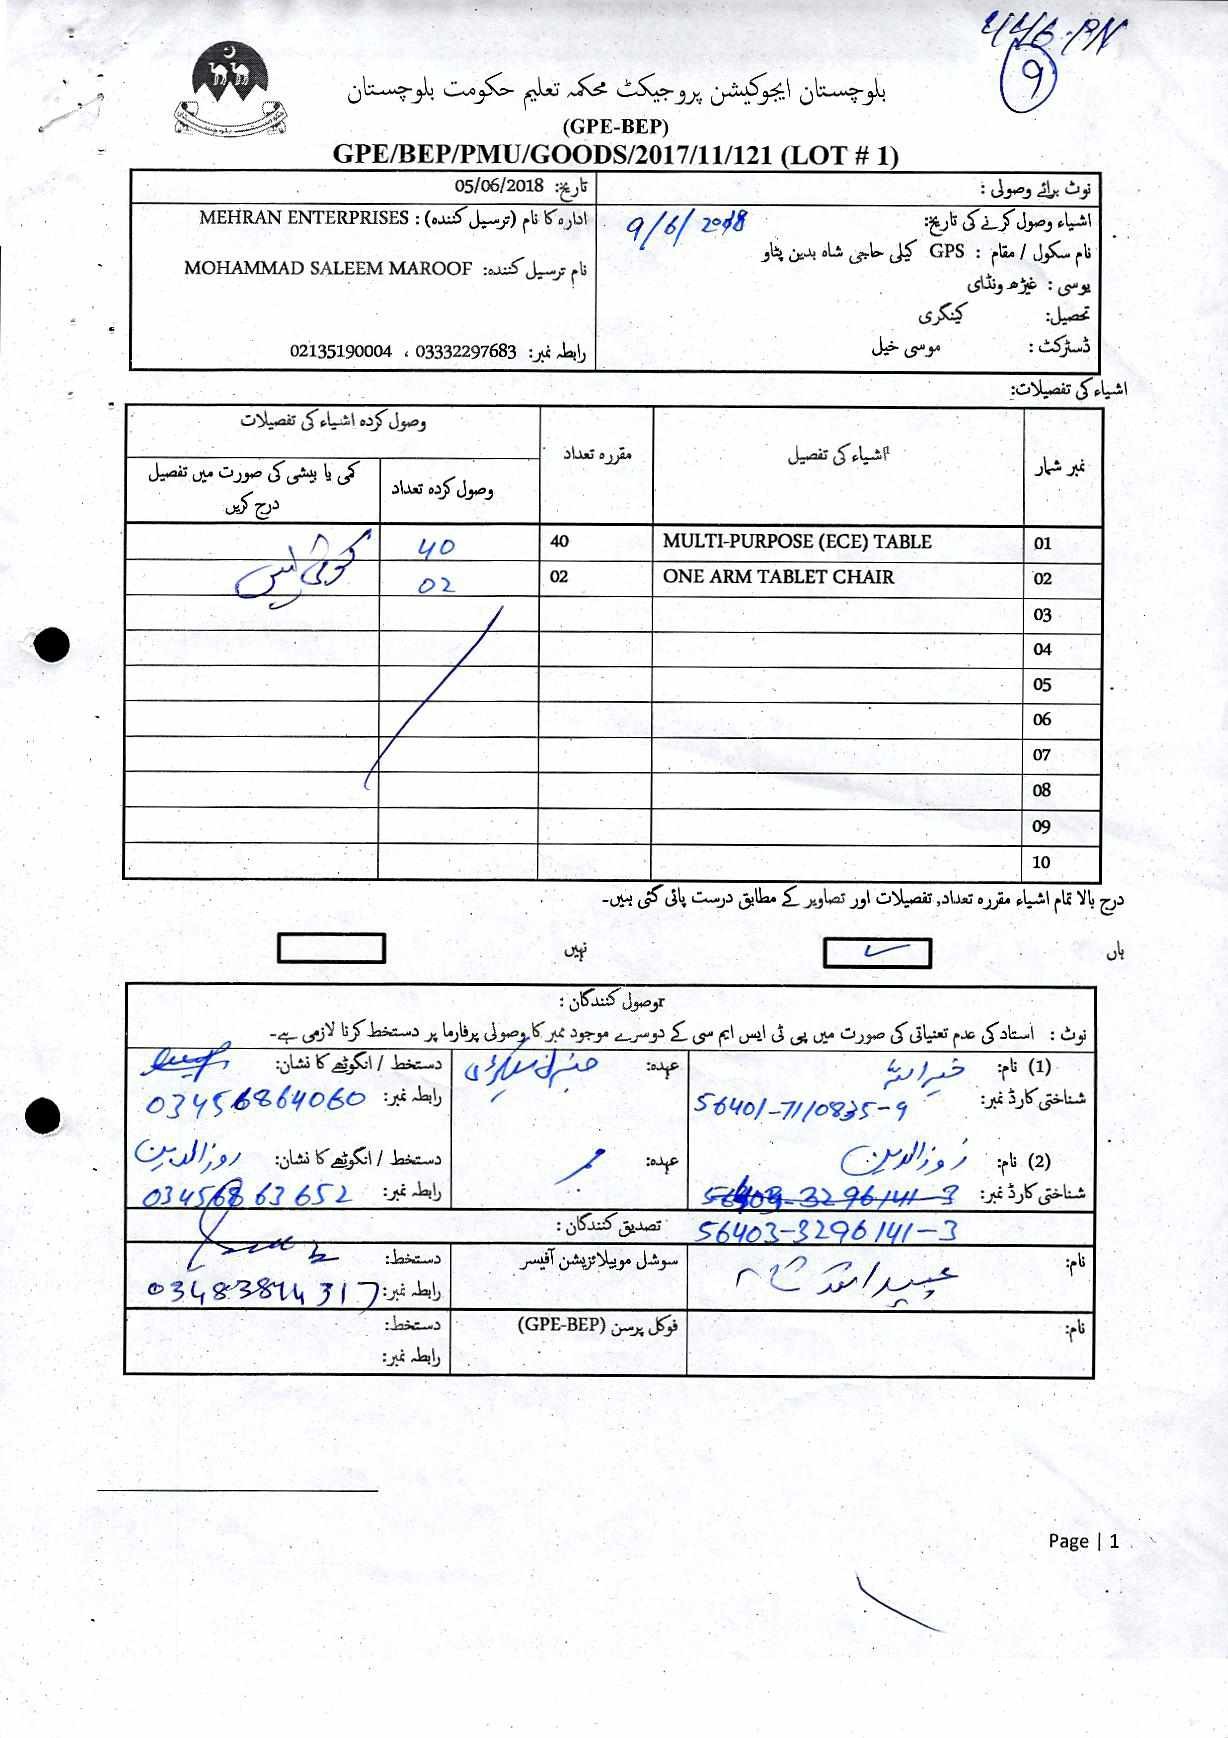 446-PN
9
بلوچستان ایجوکیشن پروجیکٹ محکمہ تعلیم حکومت بلوچستان
(GPE-BEP)
GPE/BEP/PMU/GOODS/2017/11/121 (LOT # 1)
نوٹ برائے وصولی :
تاریخ: 05/06/2018
اشیاء وصول کرنے کی تاریخ: 9/6/2018
نام سکول / مقام : GPS کیلی حاجی شاہ بدین پٹاو
یوسی : غیڑھ ونڈای
تحصیل: کینگری
ڈسٹرکٹ : موسی خیل
ادارہ کا نام (ترسیل کنندہ) : MEHRAN ENTERPRISES
نام ترسیل کنندہ: MOHAMMAD SALEEM MAROOF
رابطہ نمبر: 03332297683 ، 02135190004
اشیاء کی تفصیلات:
نمبر شمار اشیاء کی تفصیل مقررہ تعداد وصول کردہ اشیاء کی تفصیلات
وصول کردہ تعداد کمی یا بیشی کی صورت میں تفصیل درج کریں
01 MULTI-PURPOSE (ECE) TABLE 40 40
02 ONE ARM TABLET CHAIR 02 02
03
04
05
06
07
08
09
10
درج بالا تمام اشیاء مقررہ تعداد, تفصیلات اور تصاویر کے مطابق درست پائی گئی ہیں۔
ہاں نہیں
وصول کنندگان :
نوٹ : استاد کی عدم تعنیاتی کی صورت میں پی ٹی ایس ایم سی کے دوسرے موجود ممبر کا وصولی پرفارما پر دستخط کرنا لازمی ہے۔
(1) نام: خیراللہ عہدہ: جنرل سیکرٹری دستخط / انگوٹھے کا نشان:
شناختی کارڈ نمبر: 56401-7110835-9 رابطہ نمبر: 03456864060
(2) نام: روزالدین عہدہ: ممبر دستخط / انگوٹھے کا نشان: روزالدین
شناختی کارڈ نمبر: رابطہ نمبر: 03456863652
56403-3296141-3
تصدیق کنندگان :
نام: سوشل موبیلائزیشن آفیسر دستخط:
رابطہ نمبر: 03483844317
نام: فوکل پرسن (GPE-BEP) دستخط:
رابطہ نمبر:
Page | 1